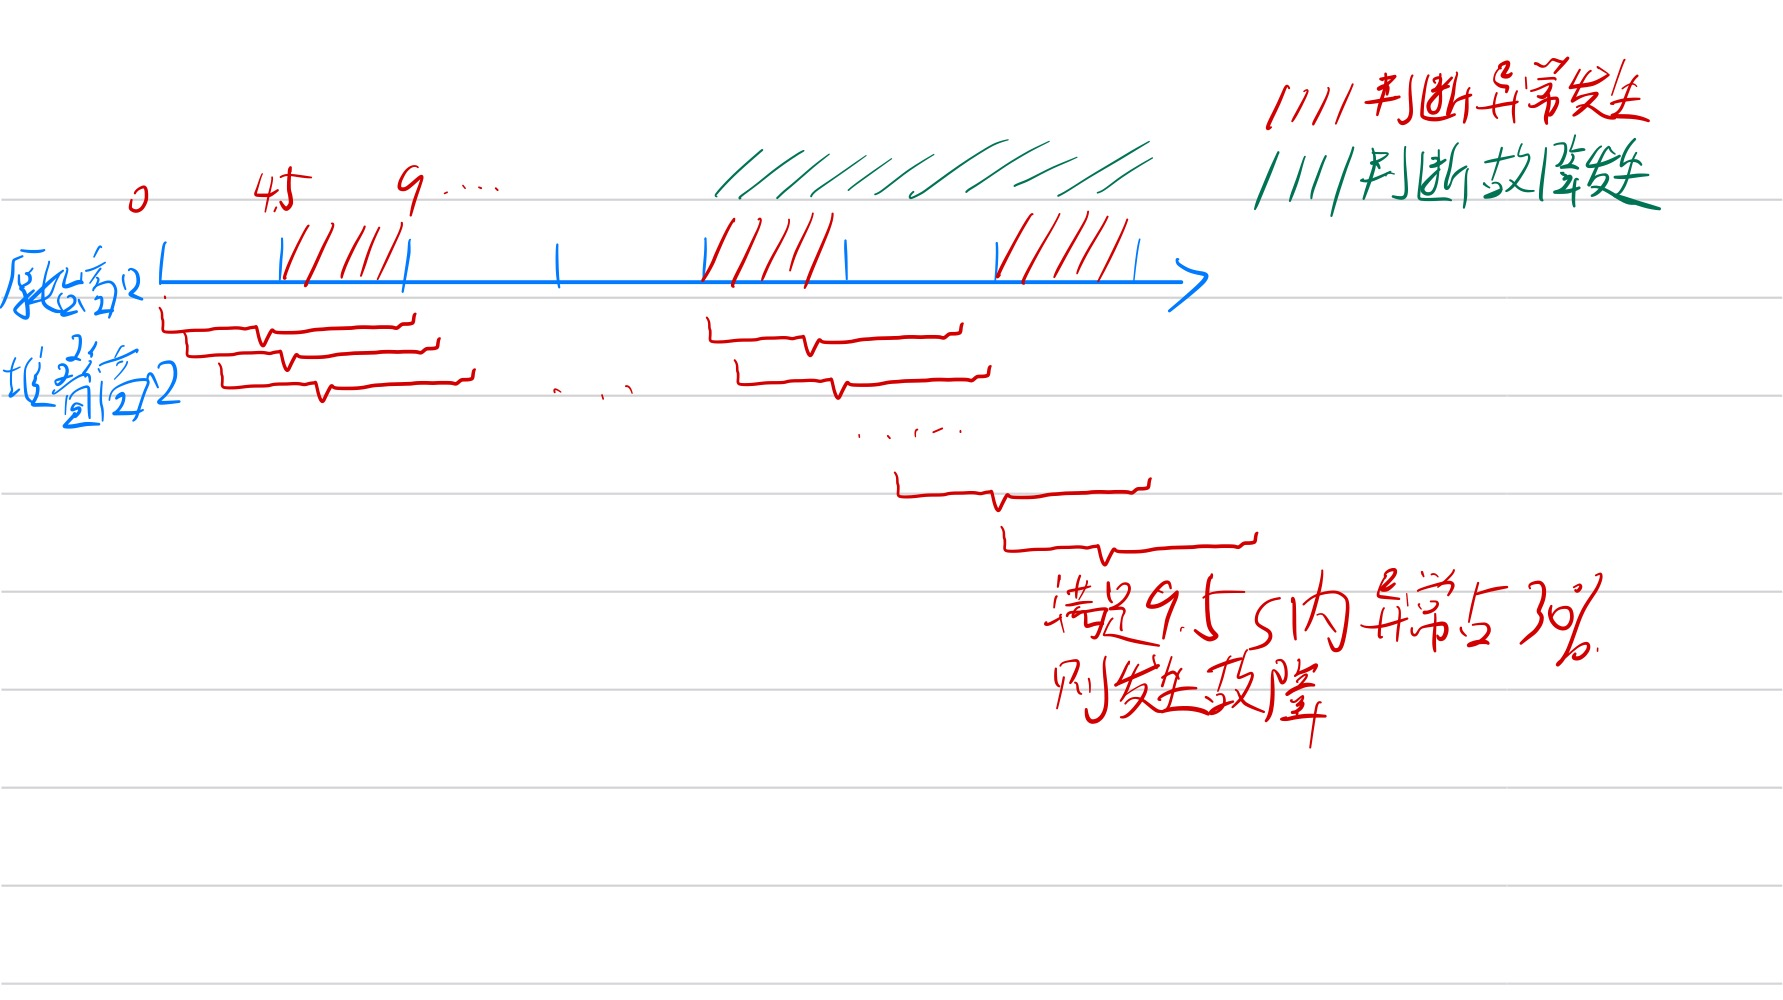 判断异常发生
判断故障发生
0 4.5 9 ....
原始窗口
堆叠窗口
满足9.5s内异常占30%.
则发生故障